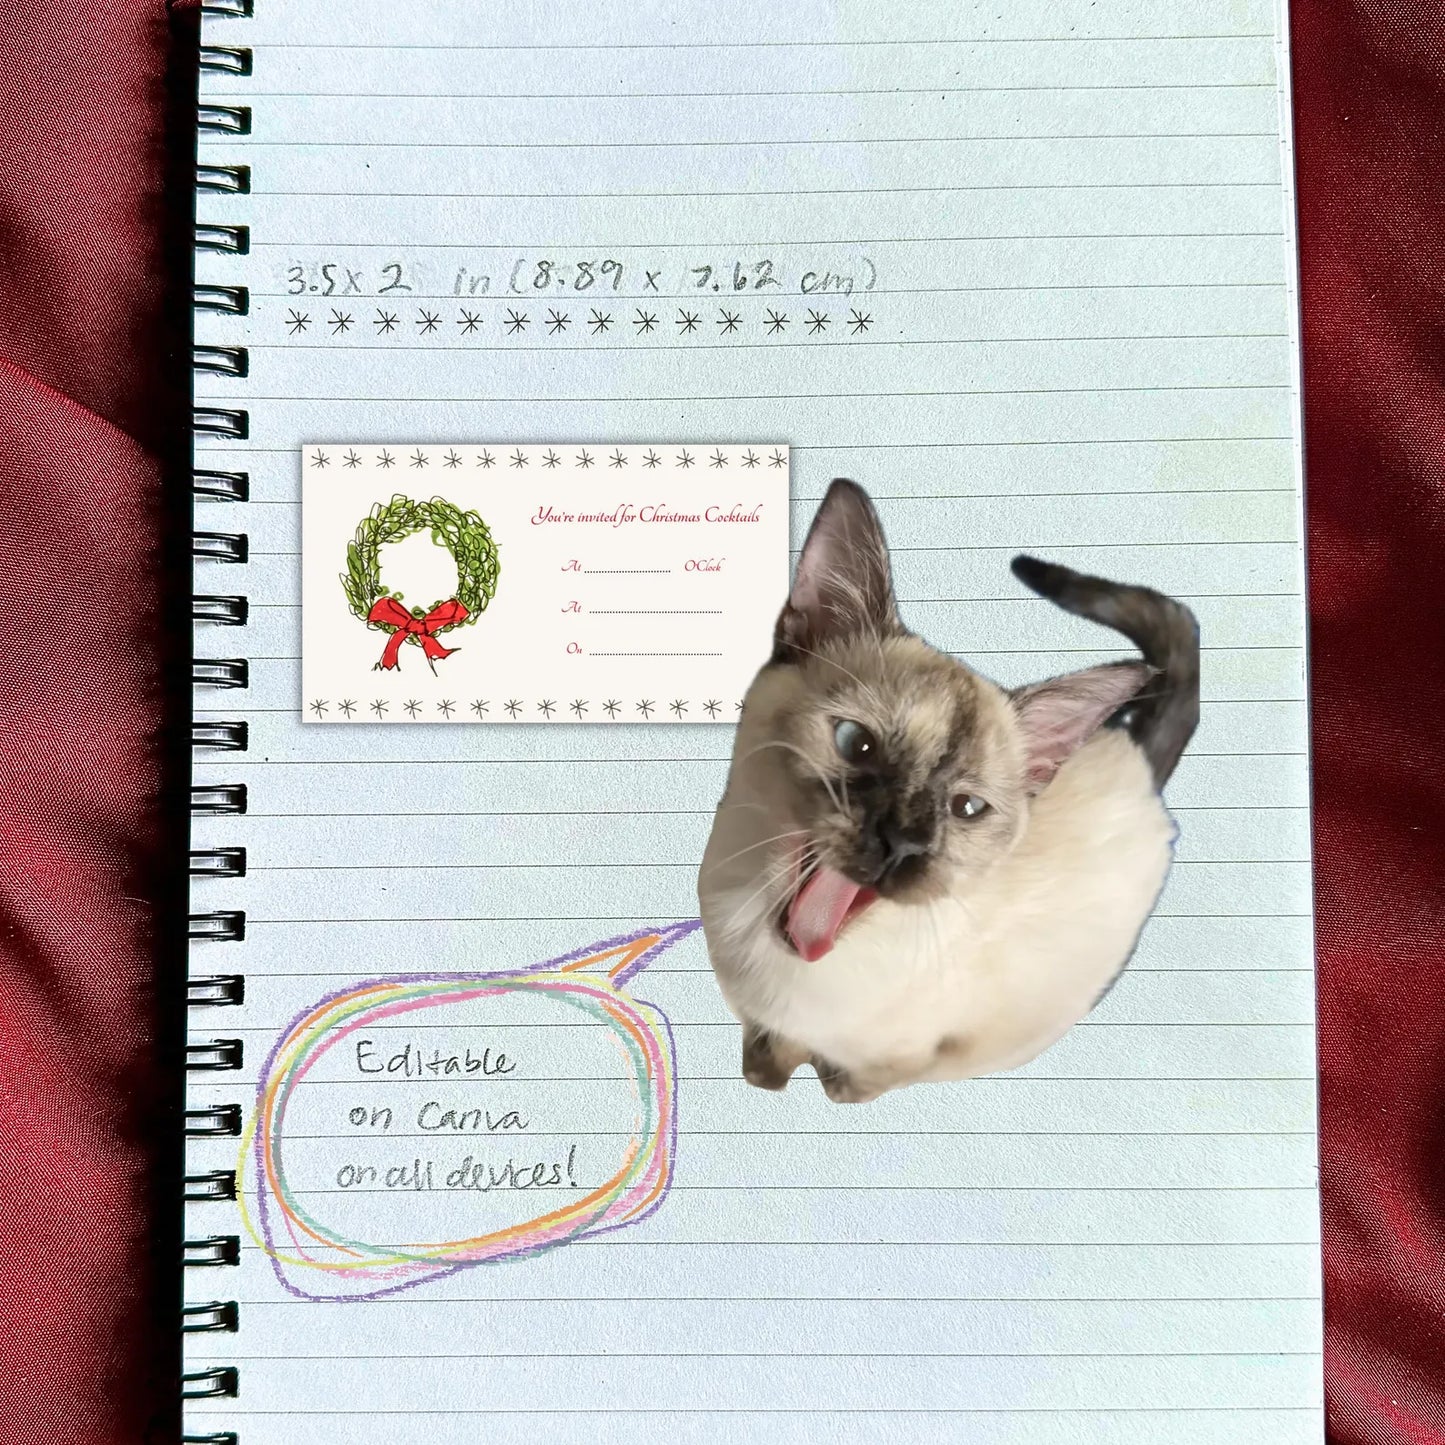 3.5 x 2 in (8.89 x 7.62 cm)
You're invited for Christmas Cocktails
At ........................ O'Clock
At ........................
On ........................
Editable
on Canva
on all devices!